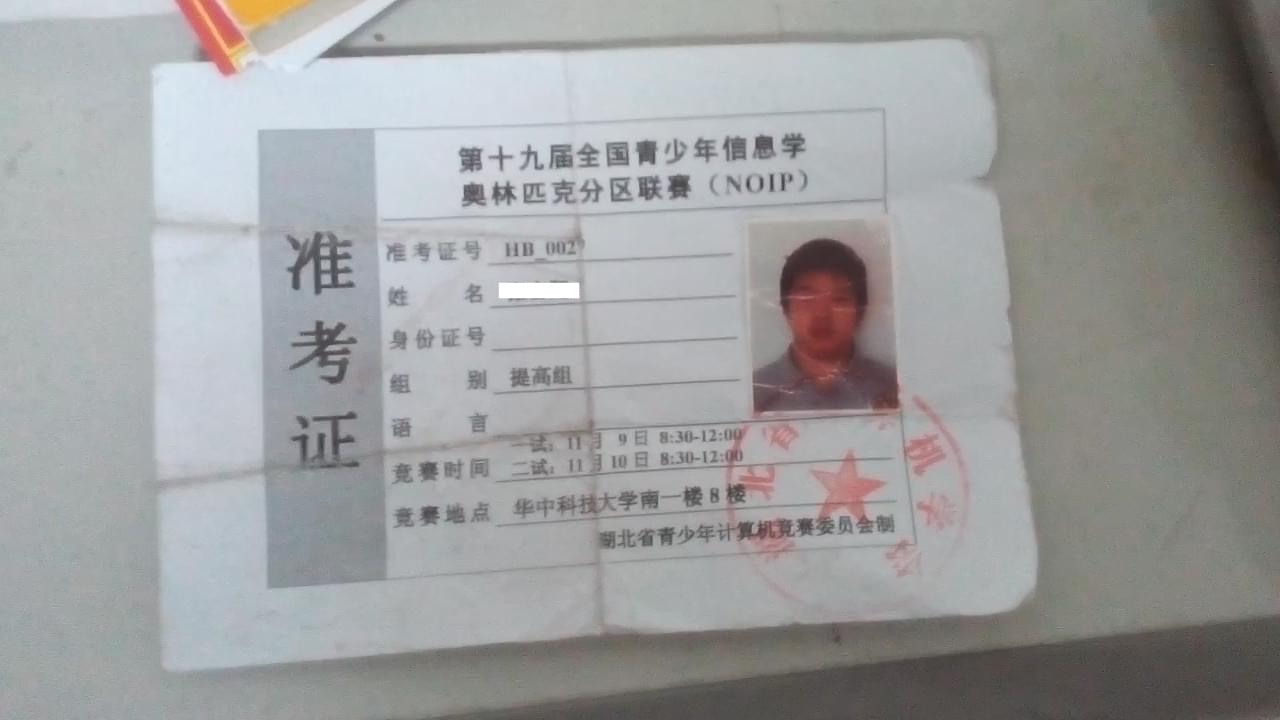 第十九届全国青少年信息学
奥林匹克分区联赛（NOIP）
准考证
准考证号 HB_0027
姓 名
身份证号
组 别 提高组
语 言
竞赛时间 一试：11月 9日 8:30-12:00
二试：11月10日 8:30-12:00
竞赛地点 华中科技大学南一楼8楼
湖北省青少年计算机竞赛委员会制